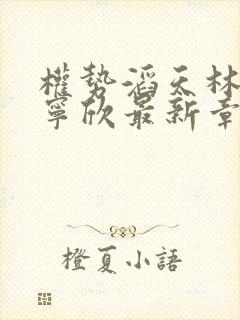 權勢滔天林
寧欣最新章
橙夏小語